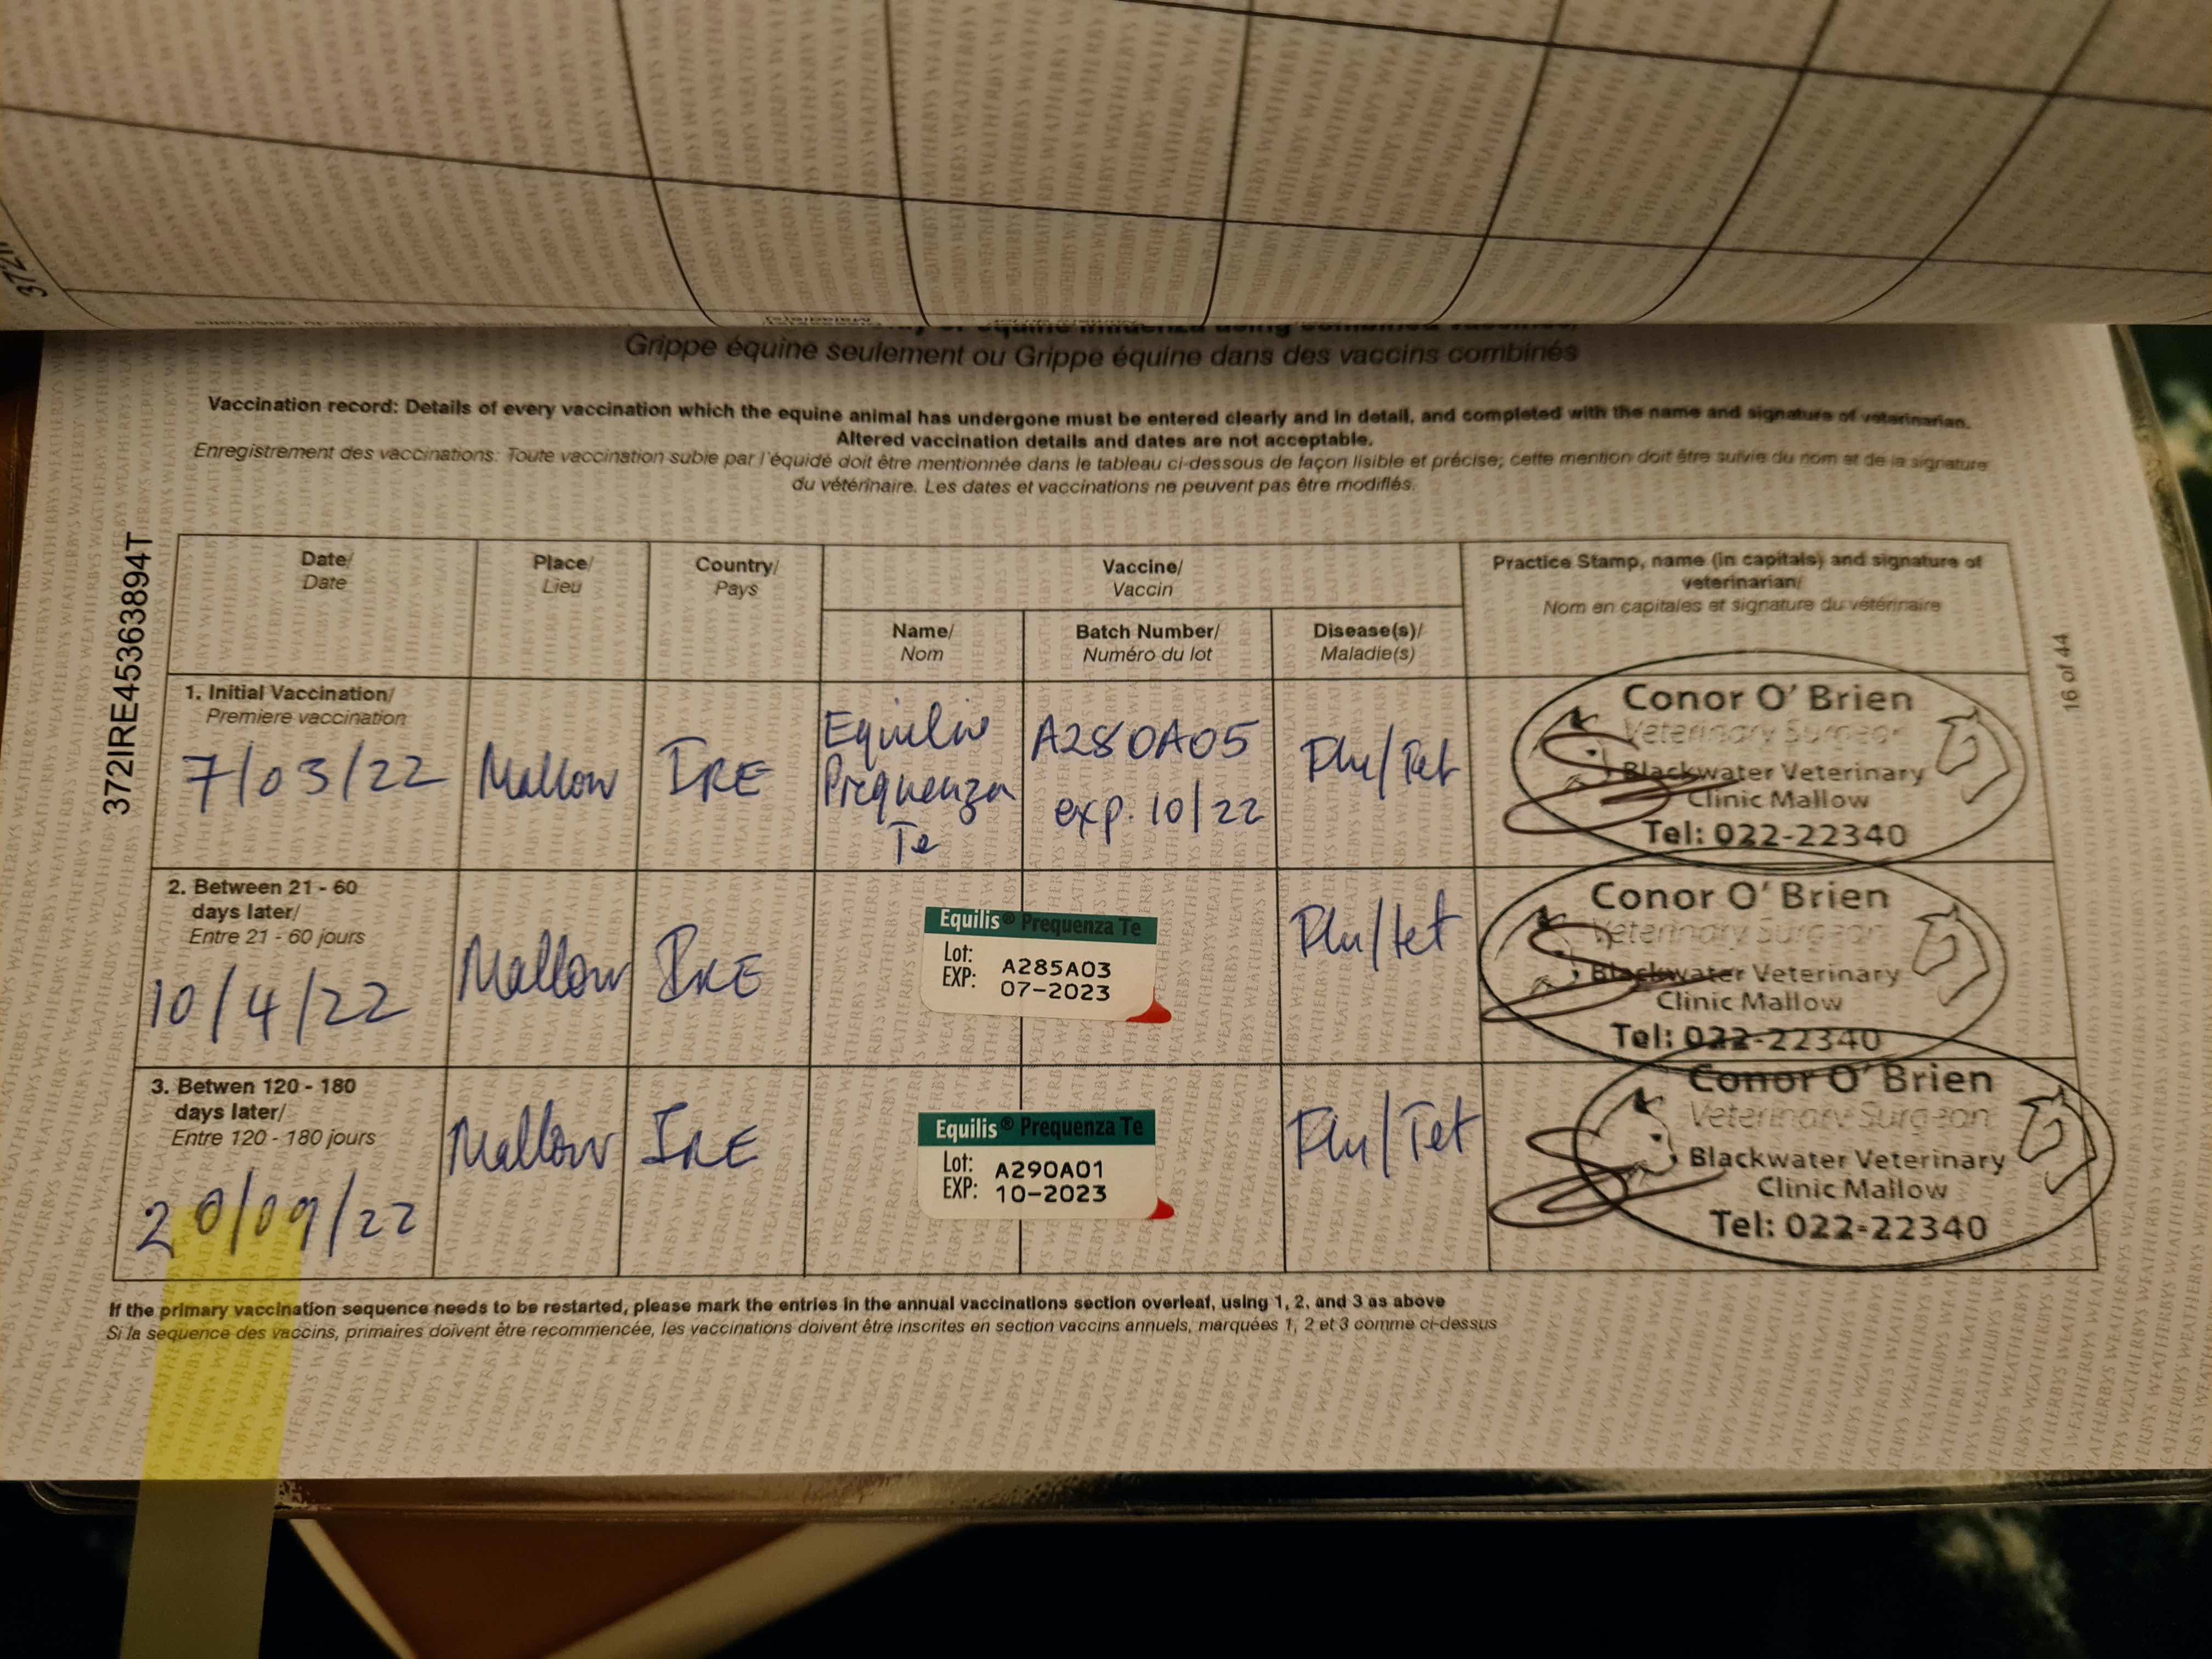 Grippe équine seulement ou Grippe équine dans des vaccins combinés
Vaccination record: Details of every vaccination which the equine animal has undergone must be entered clearly and in detail, and completed with the name and signature of veterinarian.
Altered vaccination details and dates are not acceptable.
Enregistrement des vaccinations: Toute vaccination subie par l'équidé doit être mentionnée dans le tableau ci-dessous de façon lisible et précise; cette mention doit être suivie du nom et de la signature
du vétérinaire. Les dates et vaccinations ne peuvent pas être modifiés.
372IRE45363894T
16 of 44
Date/
Date
Place/
Lieu
Country/
Pays
Vaccine/
Vaccin
Name/
Nom
Batch Number/
Numéro du lot
Disease(s)/
Maladie(s)
Practice Stamp, name (in capitals) and signature of
veterinarian/
Nom en capitales et signature du vétérinaire
1. Initial Vaccination/
Premiere vaccination
7/03/22
Mallow
IRE
Equilis
Prequenza
Te
A280A05
exp. 10/22
Flu/Tet
Conor O' Brien
Veterinary Surgeon
Blackwater Veterinary
Clinic Mallow
Tel: 022-22340
2. Between 21 - 60
days later/
Entre 21 - 60 jours
10/4/22
Mallow
IRE
Equilis® Prequenza Te
Lot: A285A03
EXP: 07-2023
Flu/tet
Conor O' Brien
Veterinary Surgeon
Blackwater Veterinary
Clinic Mallow
Tel: 022-22340
3. Betwen 120 - 180
days later/
Entre 120 - 180 jours
20/09/22
Mallow
IRE
Equilis® Prequenza Te
Lot: A290A01
EXP: 10-2023
Flu/Tet
Conor O' Brien
Veterinary Surgeon
Blackwater Veterinary
Clinic Mallow
Tel: 022-22340
If the primary vaccination sequence needs to be restarted, please mark the entries in the annual vaccinations section overleaf, using 1, 2, and 3 as above
Si la sequence des vaccins, primaires doivent être recommencée, les vaccinations doivent être inscrites en section vaccins annuels, marquées 1, 2 et 3 comme ci-dessus